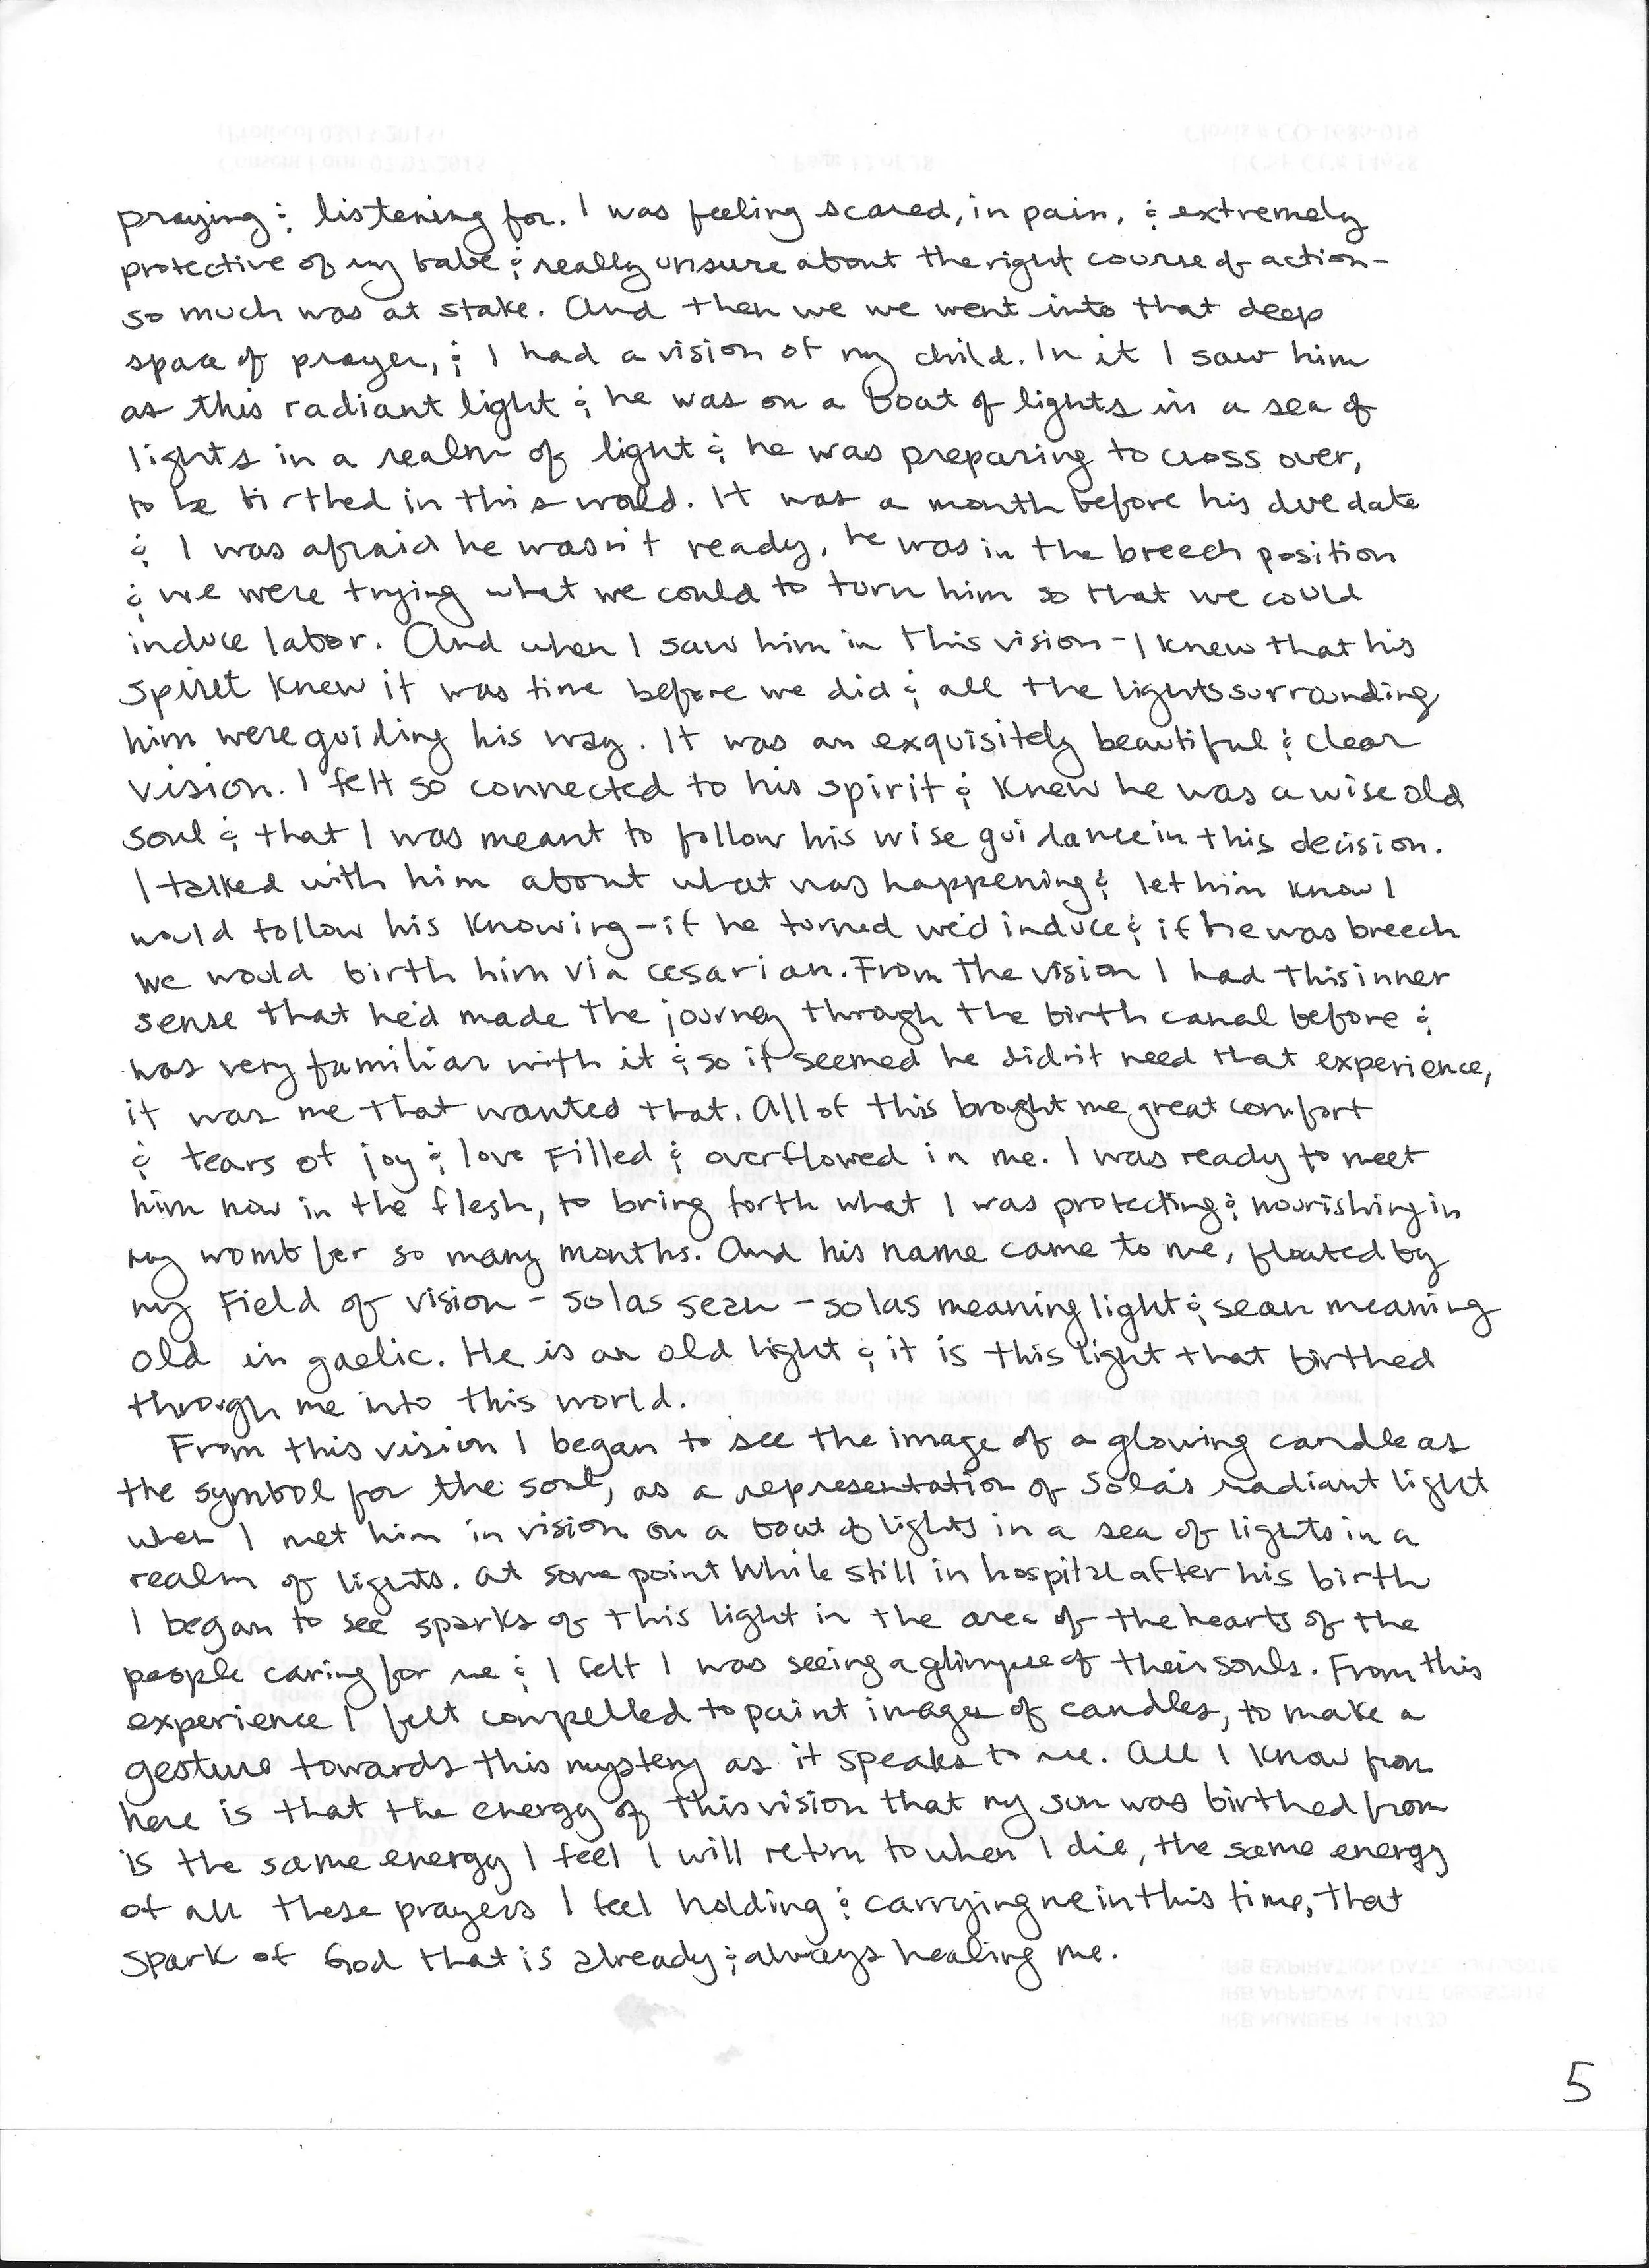 praying & listening for. I was feeling scared, in pain, & extremely
protective of my babe & really unsure about the right course of action -
so much was at stake. And then we we went into that deep
space of prayer, & I had a vision of my child. In it I saw him
as this radiant light & he was on a boat of lights in a sea of
lights in a realm of light & he was preparing to cross over,
to be birthed in this world. It was a month before his due date
& I was afraid he wasn't ready, he was in the breech position
& we were trying what we could to turn him so that we could
induce labor. And when I saw him in this vision - I knew that his
spirit knew it was time before we did & all the lights surrounding
him were guiding his way. It was an exquisitely beautiful & clear
vision. I felt so connected to his spirit & knew he was a wise old
soul & that I was meant to follow his wise guidance in this decision.
I talked with him about what was happening & let him know I
would follow his knowing - if he turned we'd induce & if he was breech
we would birth him via cesarian. From the vision I had this inner
sense that he'd made the journey through the birth canal before &
was very familiar with it & so it seemed he didn't need that experience,
it was me that wanted that. All of this brought me great comfort
& tears of joy & love filled & overflowed in me. I was ready to meet
him now in the flesh, to bring forth what I was protecting & nourishing in
my womb for so many months. And his name came to me, floated by
my field of vision - solas sean - solas meaning light & sean meaning
old in gaelic. He is an old light & it is this light that birthed
through me into this world.
From this vision I began to see the image of a glowing candle as
the symbol for the soul, as a representation of Solas's radiant light
when I met him in vision on a boat of lights in a sea of lights in a
realm of lights. At some point while still in hospital after his birth
I began to see sparks of this light in the area of the hearts of the
people caring for me & I felt I was seeing a glimpse of their souls. From this
experience I felt compelled to paint images of candles, to make a
gesture towards this mystery as it speaks to me. All I know from
here is that the energy of this vision that my son was birthed from
is the same energy I feel I will return to when I die, the same energy
of all these prayers I feel holding & carrying me in this time, that
spark of God that is already & always healing me.
5